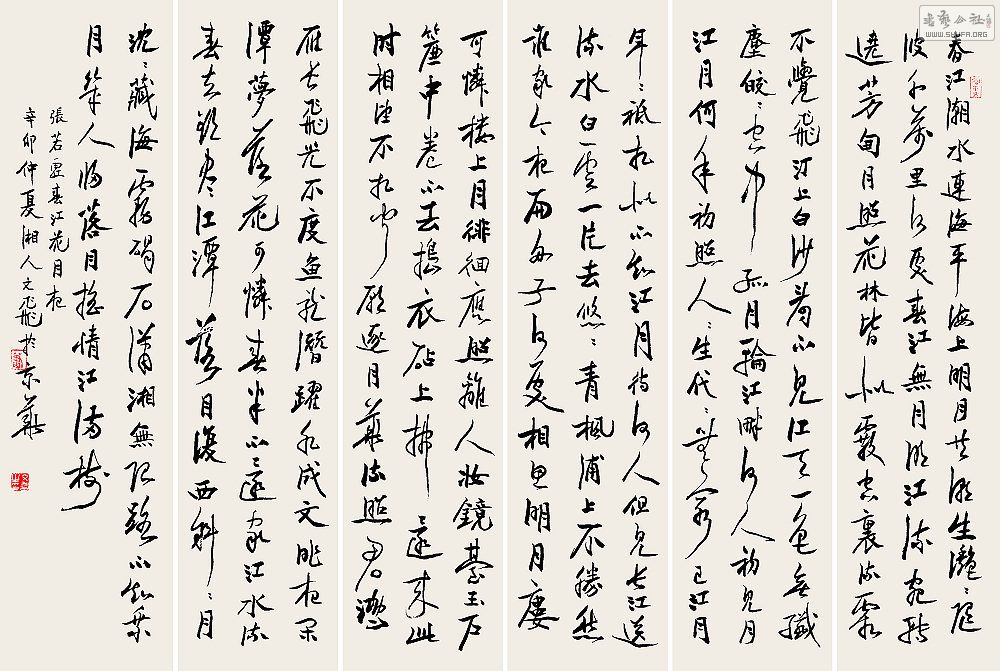 春江潮水連海平海上明月共潮生灩〻隨
波千萬里何處春江無月明江流宛轉
遶芳甸月照花林皆似霰空裏流霜
不覺飛汀上白沙看不見江天一色無纖
塵皎〻空中孤月輪江畔何人初見月
江月何年初照人〻生代〻無窮已江月
年〻祇相似不知江月待何人但見長江送
流水白雲一片去悠〻青楓浦上不勝愁
誰家今夜扁舟子何處相思明月廔
可憐樓上月徘徊應照離人妝鏡臺玉戶
簾中卷不去搗衣砧上拂還來此
時相望不相聞願逐月華流照君鴻
雁長飛光不度魚龍潛躍水成文昨夜閑
潭夢落花可憐春半不還家江水流
春去欲盡江潭落月復西斜〻月
沈〻藏海霧碣石瀟湘無限路不知乘
月幾人歸落月搖情江滿樹
張若虛春江花月夜
辛卯仲夏湘人文飛於京華
书艺公社
WWW.SHUFA.ORG